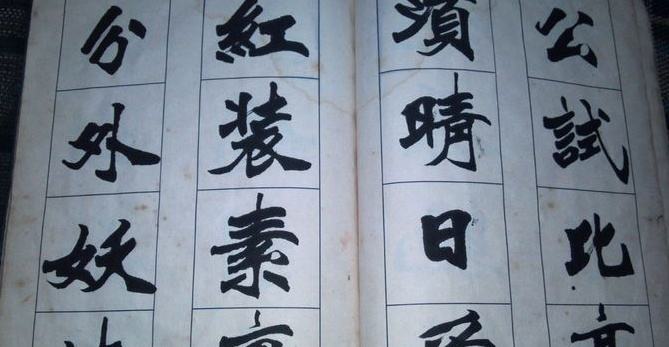 公試比
須晴日
紅装素
分外妖